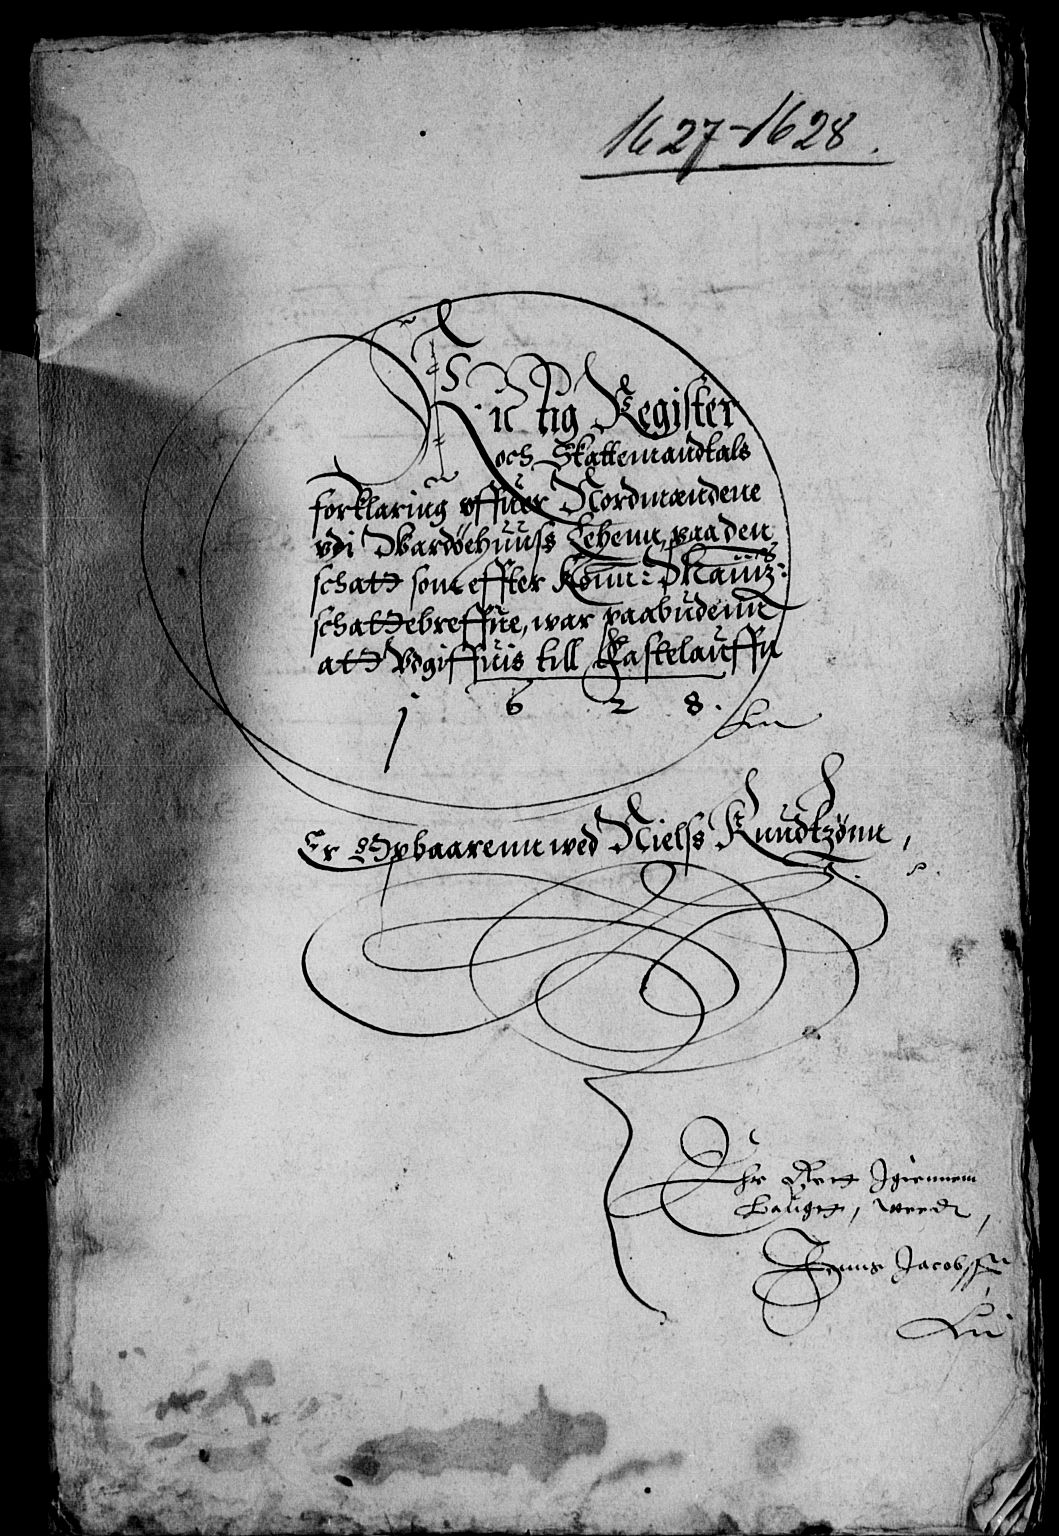 1627-1628.
Richtig Register
och Skattemandtals
forklaring offuer Nordmændene
vdi Wardøehuuss Lehenn, paa den
schatt som effter Konn: Maÿtz:
schattebreffue, war paabudenn
att Vdgiffuis till Fastelauffn
1 6 2 8.
Er Opbaarenn wed Nielss Knudtzønn,
Ehr Rett Igiennem
Langtt, weedt,
Jenns Jacobssen